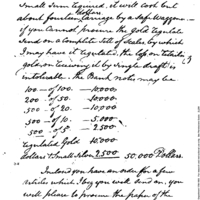 Small Sum required. it will cost but
about fourteen dollars carriage by a Safe Waggon—
if you cannot procure the Gold regulated
send on a complete sett of Scales by which
I may have it regulated. the loss on retailing
gold on receiving it by single draft is
intolerable. the Bank notes may be
100 — of 100 — 10,000
200 — of 50 — 10,000
500 — of 20 — 10,000
500 — of 10 — 5,000
500 — of 5 — 2,500
regulated Gold 10,000
dollars & Small Silver 2,500 50,000 Dollars.
Inclosed you have an order for a few
articles which I beg you will send on. you
will please to procure the paper of the